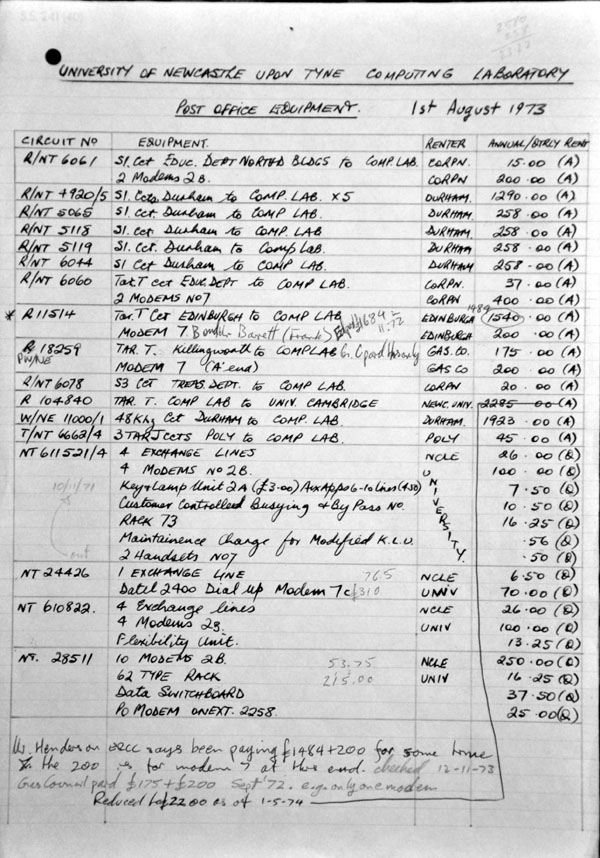 SS 241 (40)
UNIVERSITY OF NEWCASTLE UPON TYNE COMPUTING LABORATORY
POST OFFICE EQUIPMENT. 1st August 1973
CIRCUIT NO EQUIPMENT. RENTER ANNUAL/QTRLY RENT
R/NT 6061 S1. Cct EDUC. DEPT NORTHD BLDGS to COMP LAB. CORPN. 15.00 (A)
2 Modems 2B. CORPN. 200.00 (A)
R/NT 4920/5 S1. Ccts. Durham to COMP. LAB. X5 DURHAM. 1290.00 (A)
R/NT 5065 S1. cct Durham to COMP LAB. DURHAM. 258.00 (A)
R/NT 5118 S1. cct Durham to COMP LAB. DURHAM. 258.00 (A)
R/NT 5119 S1. Cct. Durham to Comp Lab. DURHAM 258.00 (A)
R/NT 6044 S1 Cct Durham to COMP LAB. DURHAM 258.00 (A)
R/NT 6060 Tar.T cct EDUC. DEPT to COMP LAB. CORPN. 37.00 (A)
2 MODEMS NO 7 CORPN 400.00 (A)
* R 11514 Tar.T Cct EDINBURGH to COMP LAB EDINBURGH 1484 1540.00 (A)
MODEM 7. Barrett (Frank) 1684 11.72 EDINBURGH 200.00 (A)
R 18259 TAR. T. Killingworth to COMP LAB GAS. CO. 175.00 (A)
PW/NE MODEM 7 (A'end) GAS CO 200.00 (A)
R/NT 6078 S3 Cct TREAS DEPT. to COMP LAB. CORPN 20.00 (A)
R 104840 TAR. T. COMP LAB to UNIV. CAMBRIDGE NEWC. UNIV. 2295 00 (A)
W/NE 11000/1 48Khz Cct DURHAM to COMP LAB. DURHAM. 1923.00 (A)
T/NT 6662/4 3 TAR J CCTS POLY to COMP LAB. POLY 45.00 (A)
NT 611521/4 4 EXCHANGE LINES NCLE 26.00 (Q)
4 MODEMS NO 2B. UNIVERSITY. 100.00 (Q)
Key & Lamp Unit 2A (£3.00) Aux App 06-10 lines (4.50) 7.50 (Q)
10/11/71 Customer Controlled Busying & By Pass No. 10.50 (Q)
RACK 73 16.25 (Q)
Maintainence Charge for Modified K.L.U. .56 (Q)
out 2 Handsets NO 7 .50 (Q)
NT 24426 1 EXCHANGE LINE 76.5 NCLE 6.50 (Q)
Datel 2400 Dial up Modem 7c £310 UNIV 70.00 (Q)
NT 610822. 4 Exchange lines NCLE 26.00 (Q)
4 Modems 2B. UNIV 100.00 (Q)
Flexibility Unit. 13.25 (Q)
NT. 28511 10 MODEMS 2B. 53.75 NCLE 250.00 (Q)
62 TYPE RACK 215.00 UNIV 16.25 (Q)
Data SWITCHBOARD 37.50 (Q)
PO MODEM ON EXT. 2258. 25.00 (Q)
Mr. Henderson ERCC says been paying £1484+200 for some time
the 200 is for modem 7 at this end. checked 12-11-73
Gas Council paid £175+£200 Sept '72. e.g. only one modem
Reduced to £2200 as of 1-5-74